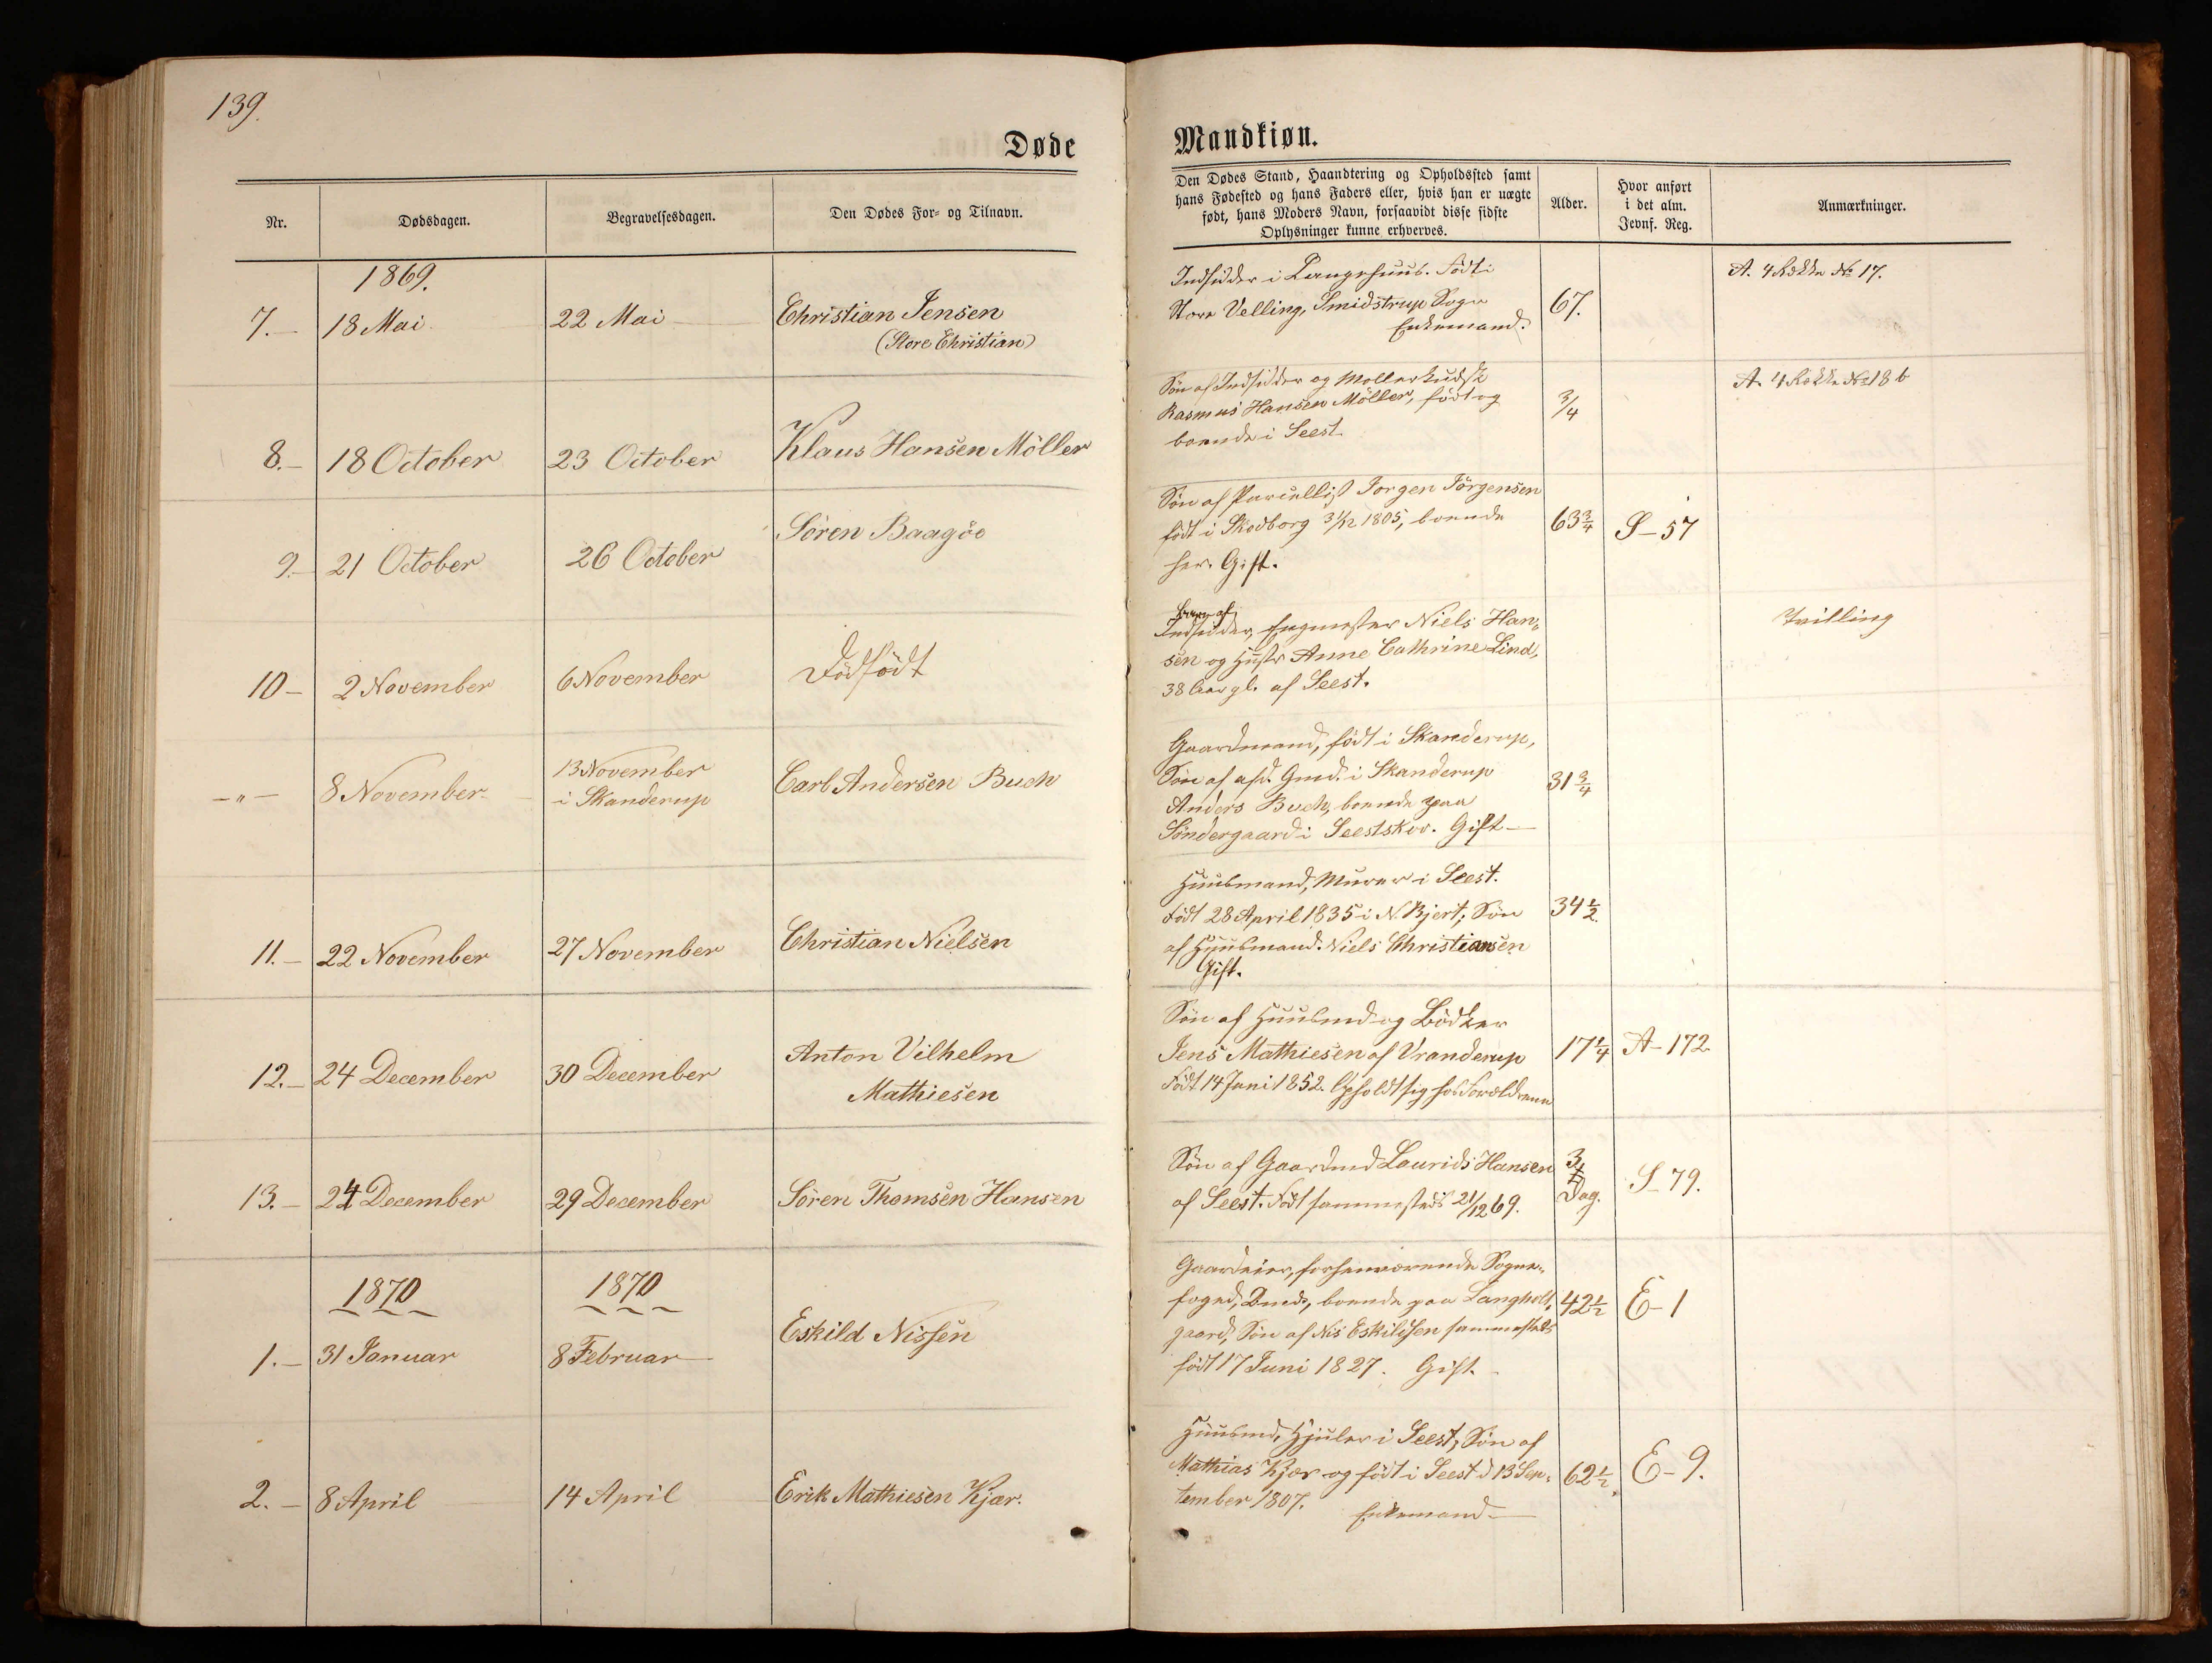 139.
Døde
Mandkiøn.
Nr.
Dødsdagen.
Begravelsesdagen.
Den Dødes For- og Tilnavn.
Den Dødes Stand, Haandtering og Opholdssted samt
hans Fødested og hans Faders eller, hvis han er uægte
født, hans Moders Navn, forsaavidt disse sidste
Oplysninger kunne erhverves.
Alder.
Hvor anført
i det alm.
Jevnf. Reg.
Anmærkninger.
1869.
7.- 18 Mai 22 Mai Christian Jensen
(Store Christian)
Indsidder i Langehuus. Født i
Store Velling, Smidstrup Sogn
Enkemand.
67.
A. 4 Række No 17.
8.- 18 October 23 October Klaus Hansen Möller
Søn af Indsidder og Møllerkudsk
Rasmus Hansen Möller, født og
boende i Seest
3/4
A. 4 Række No 18 b
9.- 21 October 26 October Søren Baagöe
Søn af Parcellist Jorgen Jörgensen
født i Skodborg 31/12 1805, boende
her. Gift.
63 3/4
S-57
10- 2 November 6 November Dödfödt
Barn af
Indsidder, Engmester Niels Han-
sen og Hustr Anne Cathrine Lind,
38 Aar gl. af Seest.
Tvilling
-"- 8 November 13 November
i Skanderup
Carl Andersen Buch
Gaardmand, født i Skanderup,
Søn af afd. Gmd. i Skanderup
Anders Buch, boende paa
Söndergaard i Seestskov. Gift-
31 3/4
11.- 22 November 27 November Christian Nielsen
Huusmand, Murer i Seest.
Født 28 April 1835 i N. Bjert; Søn
af Huusmand Niels Christiansen
Gift.
34 1/2
12.- 24 December 30 December Anton Vilhelm
Mathiesen
Søn af Huusmd og Bödker
Jens Mathiesen af Vranderup
Født 14 Juni 1852. Opholdt sig hos Forældrene
17 1/4
A-172
13.- 24 December 29 December Søren Thomsen Hansen
Søn af Gaardmd Laurids Hansen
af Seest. Født sammesteds 21/12 69.
3
Dag.
S-79.
1870
1870
1.- 31 Januar 8 Februar Eskild Nissen
Gaardeier, forhenværende Sogne-
foged, Dmd., boende paa Langholt-
gaard, Søn af Nis Eskildsen sammesteds
født 17 Juni 1827. Gift.
42 1/2
E-1
2.- 8 April 14 April Erik Mathiesen Kjær.
Huusmd, Hjuler i Seest, Søn af
Mathias Kjær og født i Seest d 13 Sep-
tember 1807. Enkemand-
62 1/2
E-9.